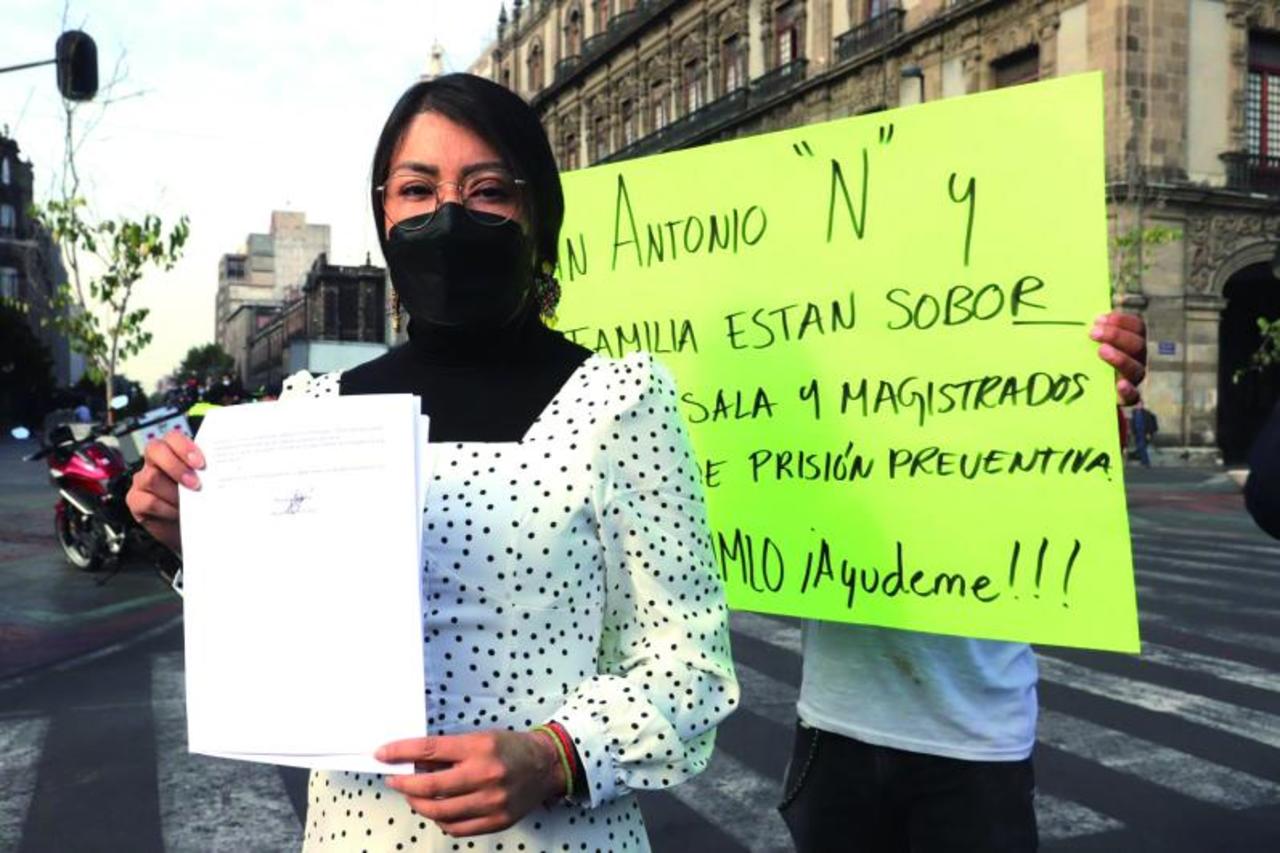 AN ANTONIO "N" Y
FAMILIA ESTAN SOBOR
SALA Y MAGISTRADOS
E PRISIÓN PREVENTIVA
MLO ¡Ayudeme!!!